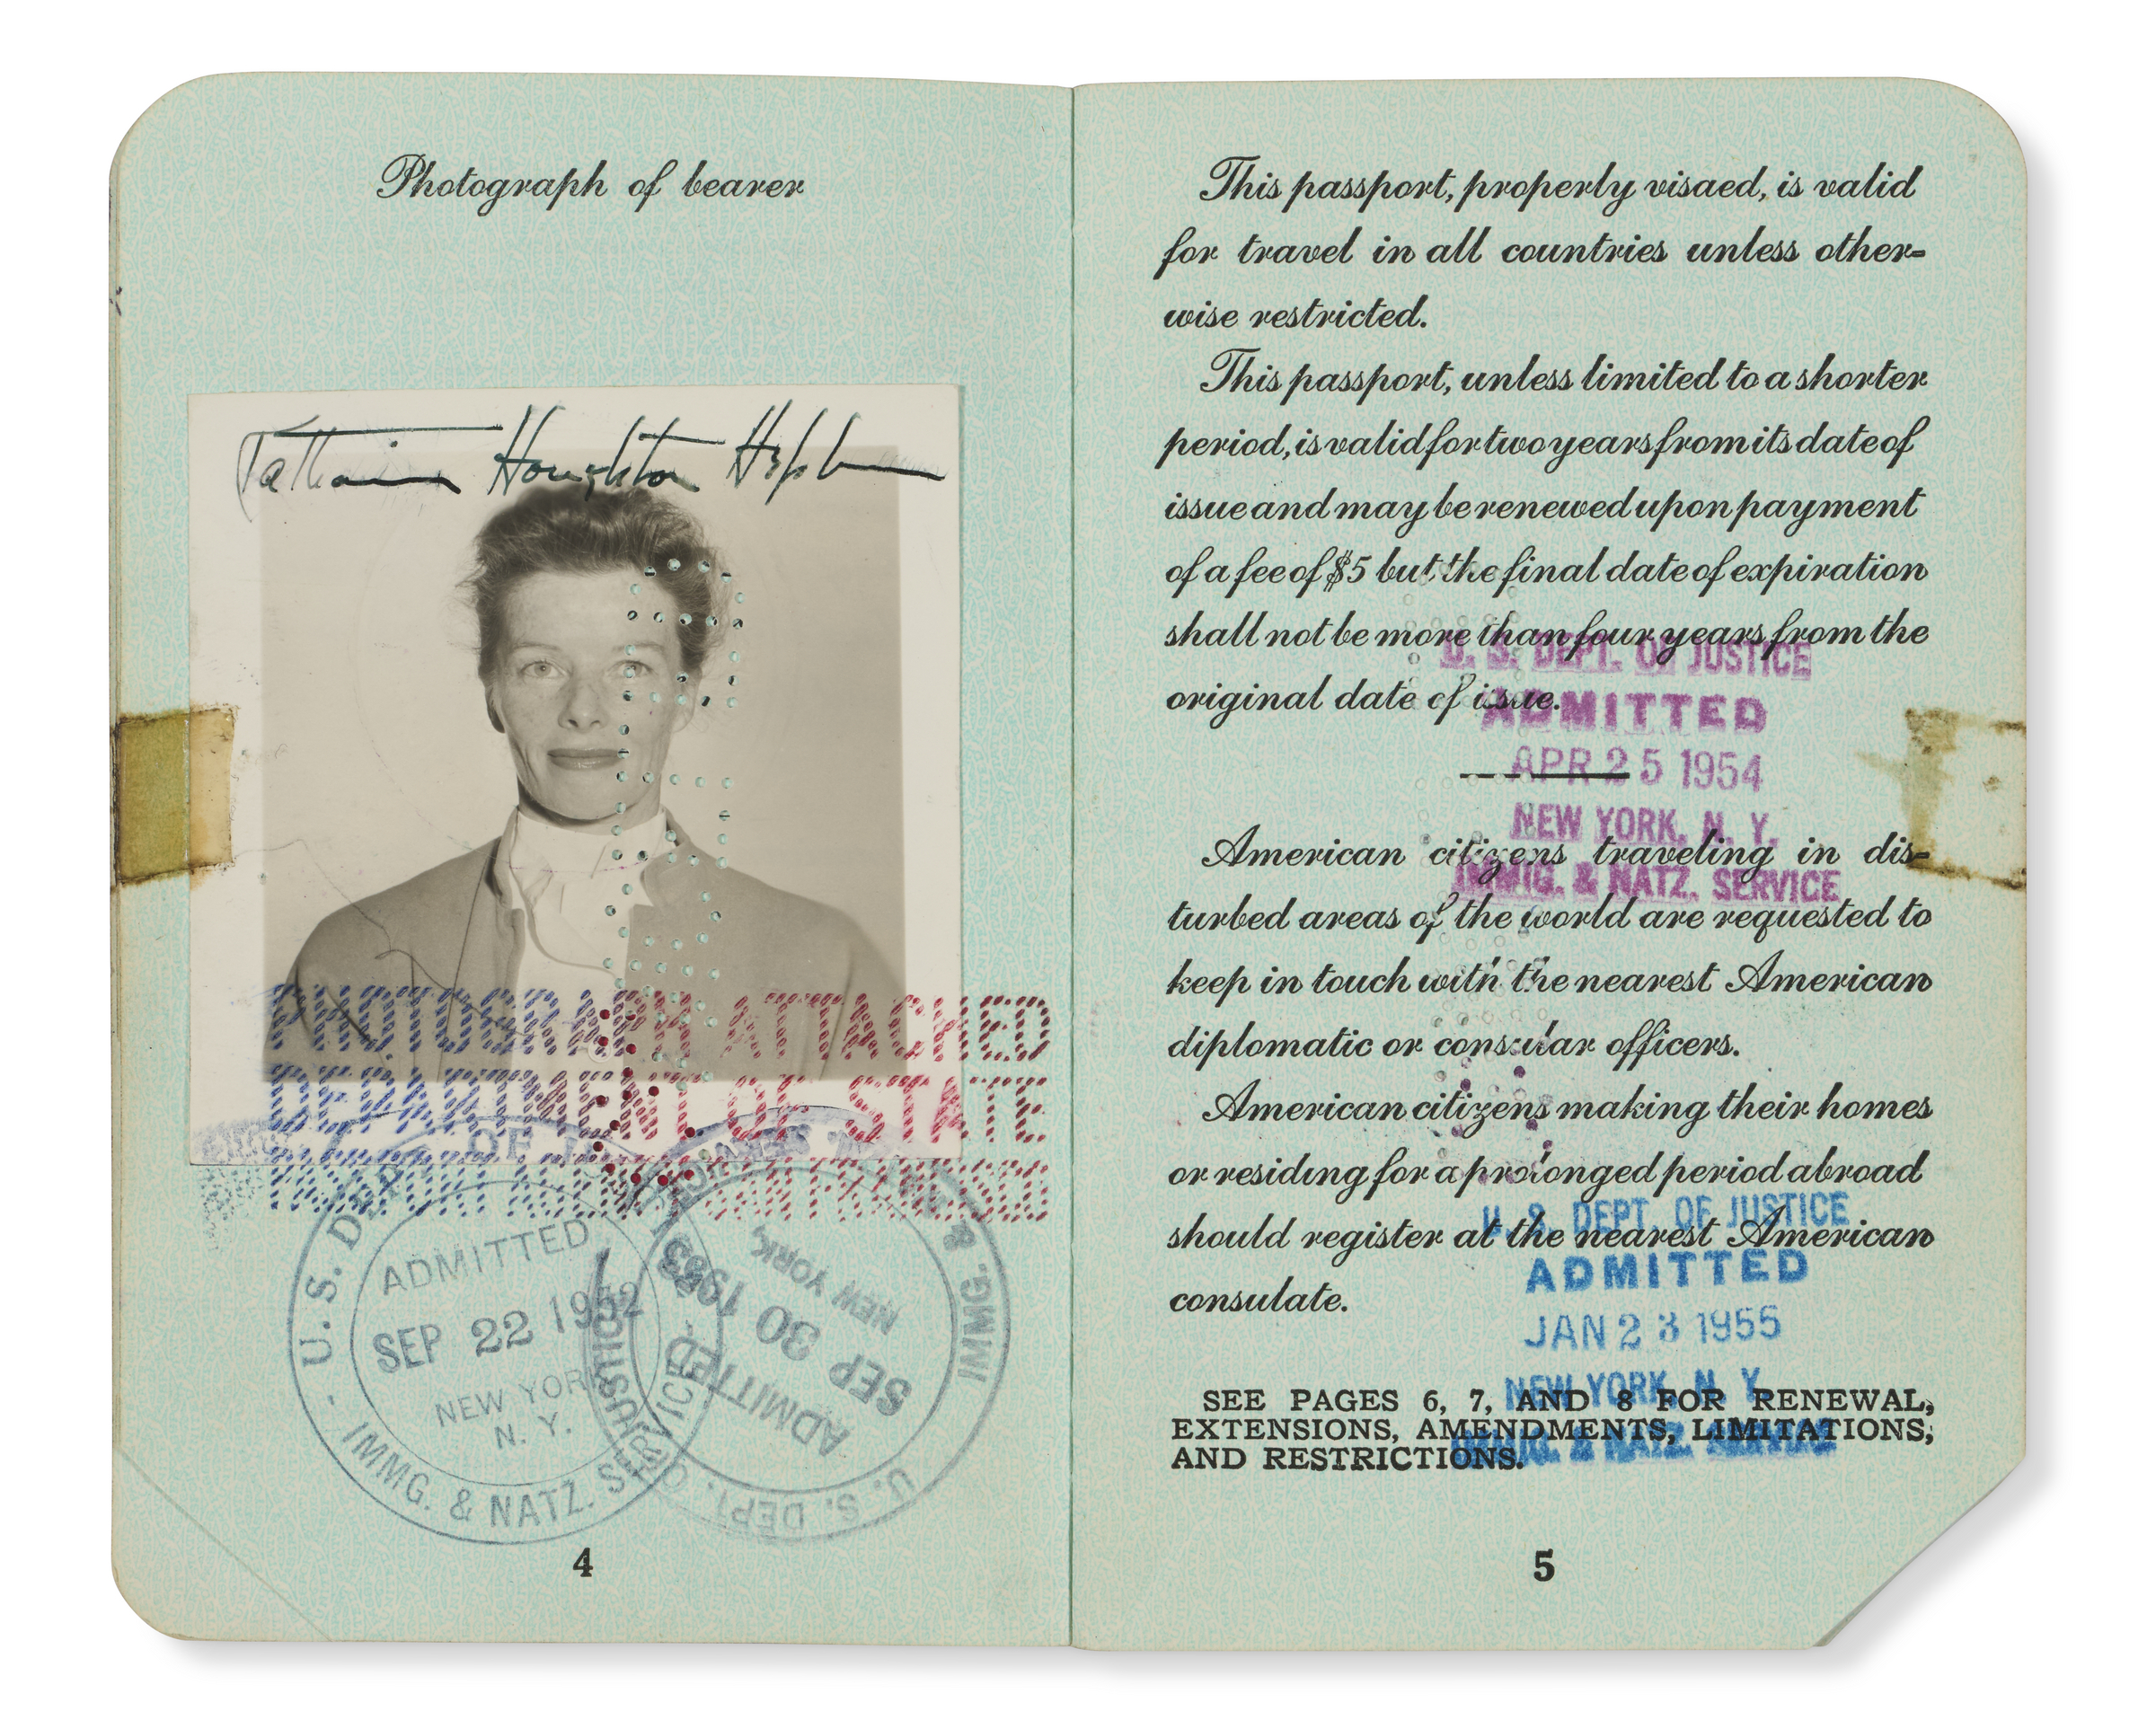 Photograph of bearer
Katharine Houghton Hepburn
PHOTOGRAPH ATTACHED
DEPARTMENT OF STATE
PASSPORT AGENCY SAN FRANCISCO
- U. S. DEPT. OF JUSTICE -
ADMITTED
SEP 22 1952
NEW YORK
N. Y.
IMMG. & NATZ. SERVICE
U. S. DEPT. OF JUSTICE
ADMITTED
SEP 30 1953
NEW YORK,
IMMG. &
4
This passport, properly visaed, is valid
for travel in all countries unless other-
wise restricted.
This passport, unless limited to a shorter
period, is valid for two years from its date of
issue and may be renewed upon payment
of a fee of $5 but the final date of expiration
shall not be more than four years from the
original date of issue.
U. S. DEPT. OF JUSTICE
ADMITTED
APR 25 1954
NEW YORK, N. Y.
IMMIG. & NATZ. SERVICE
American citizens traveling in dis-
turbed areas of the world are requested to
keep in touch with the nearest American
diplomatic or consular officers.
American citizens making their homes
or residing for a prolonged period abroad
should register at the nearest American
consulate.
U. S. DEPT. OF JUSTICE
ADMITTED
JAN 23 1955
NEW YORK, N. Y.
IMMIG. & NATZ. SERVICE
SEE PAGES 6, 7, AND 8 FOR RENEWAL,
EXTENSIONS, AMENDMENTS, LIMITATIONS,
AND RESTRICTIONS.
5